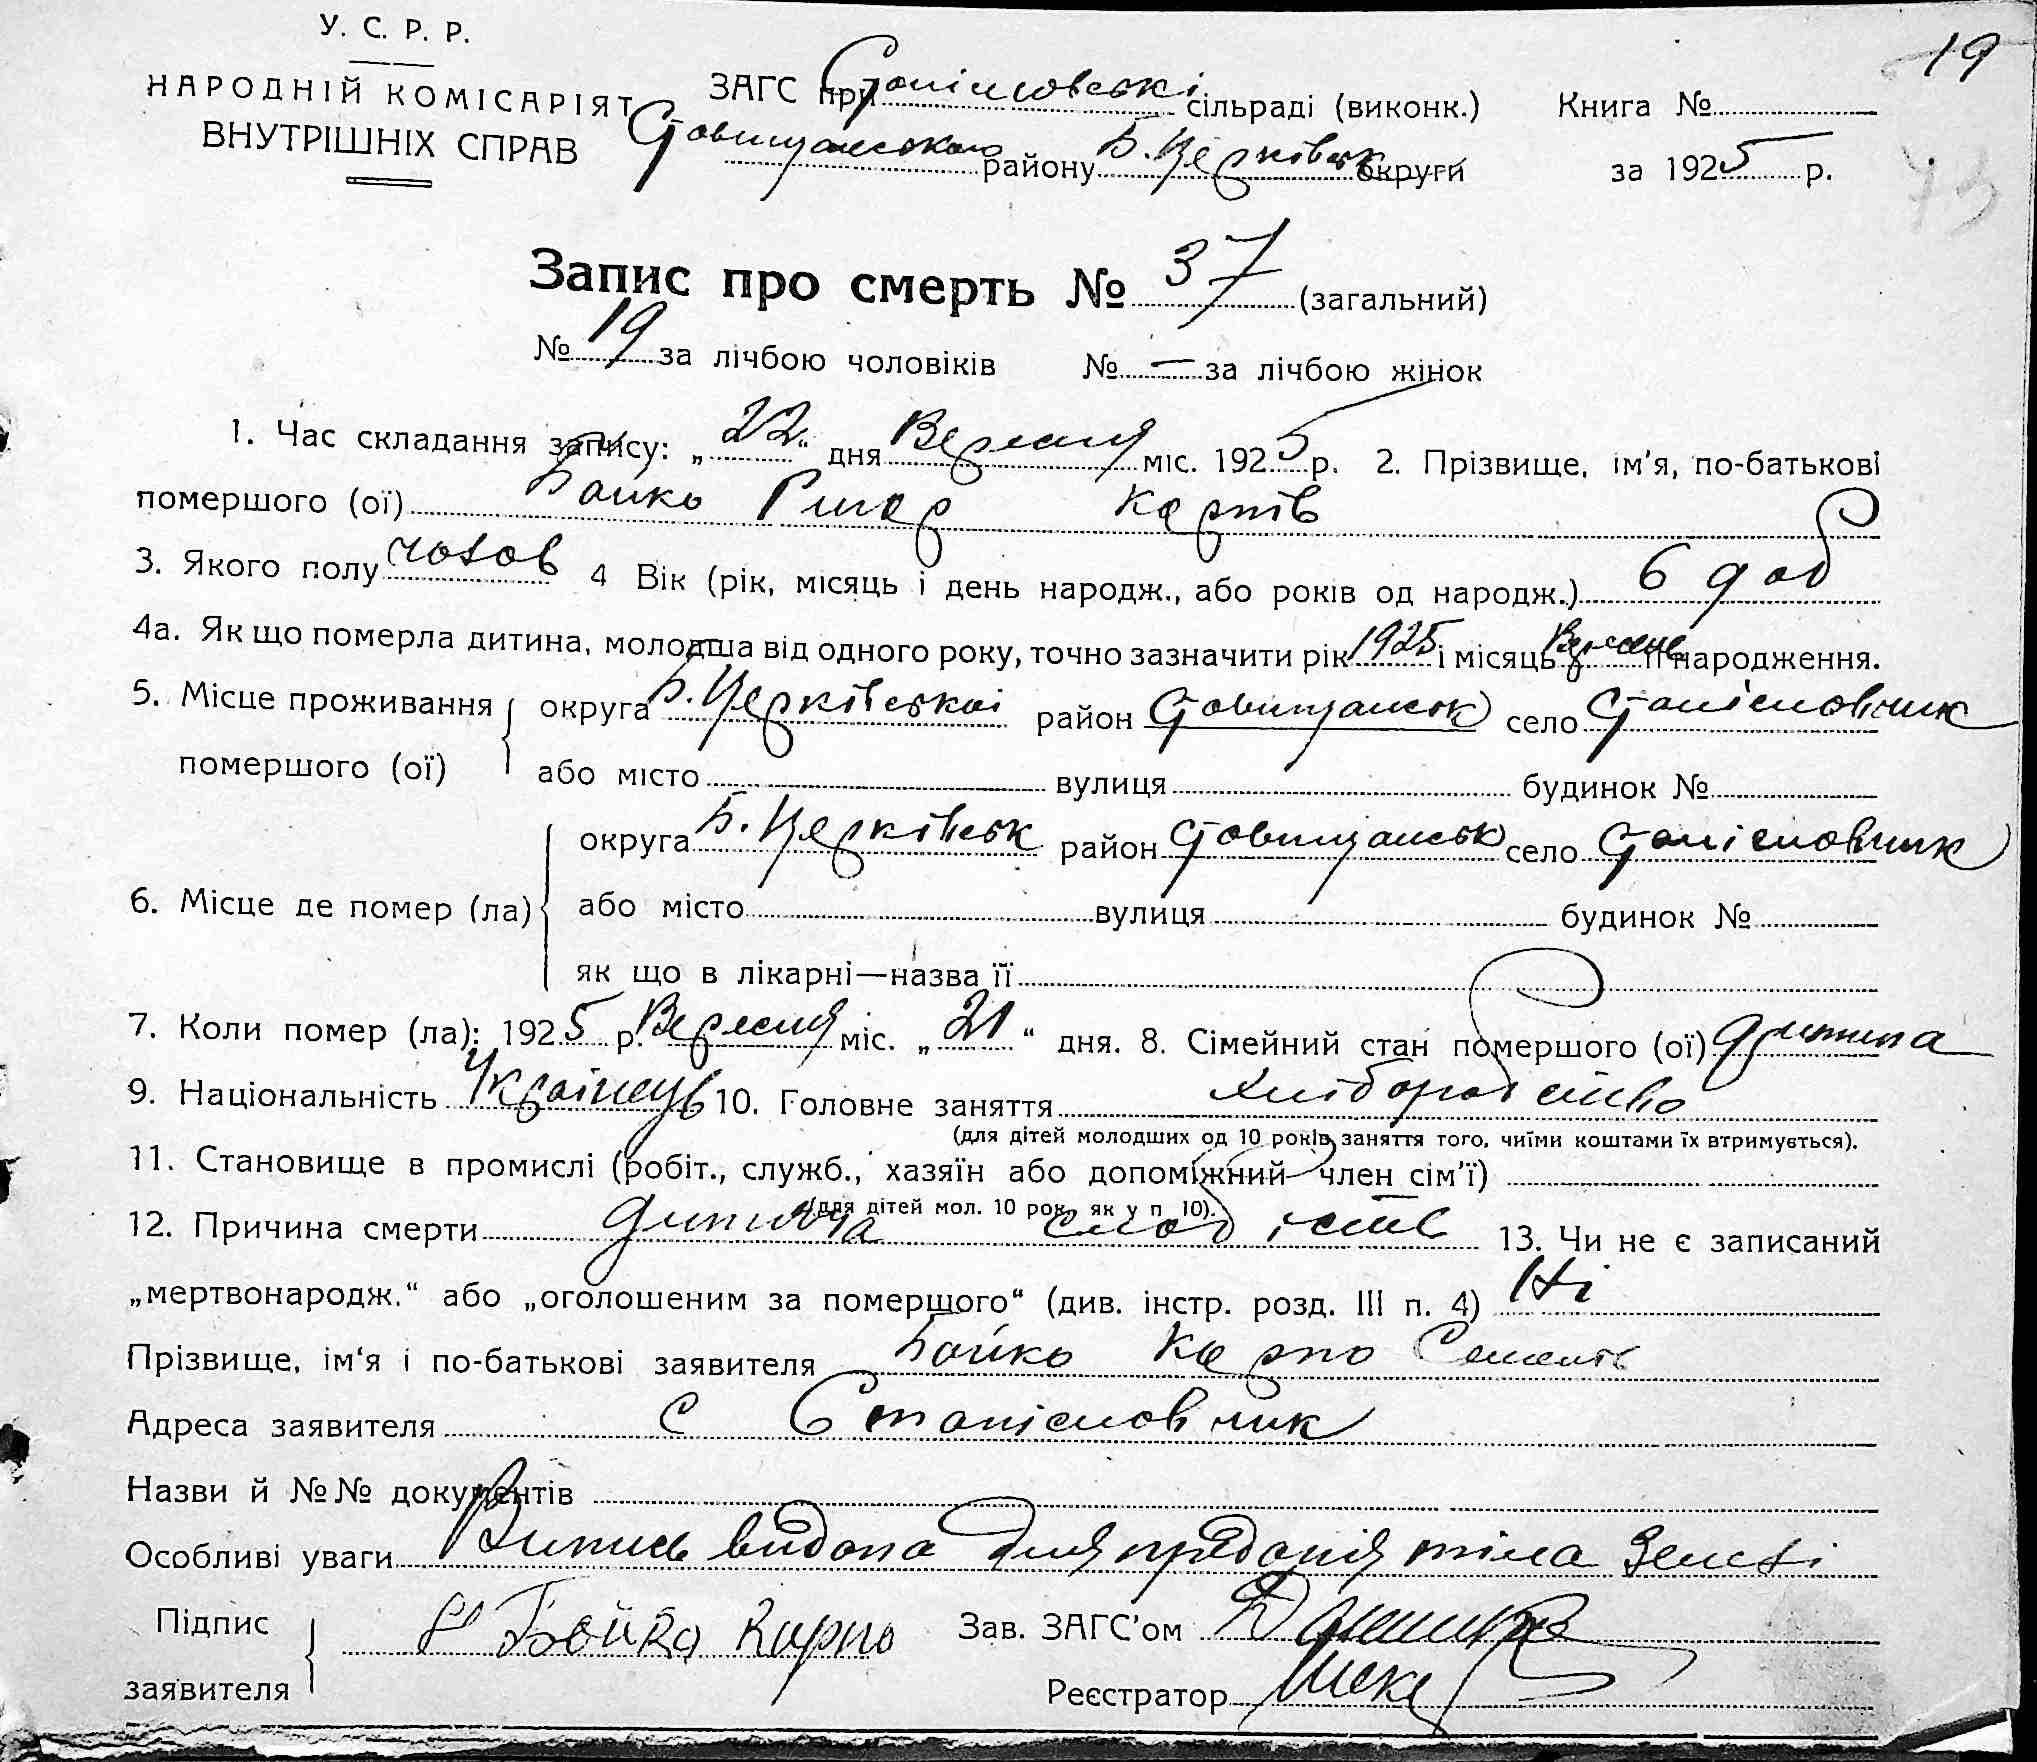 19
У. С. Р. Р.
НАРОДНІЙ КОМІСАРІЯТ
ВНУТРІШНІХ СПРАВ
ЗАГС при Станіславські сільраді (виконк.) Книга №
Ставищанського району Б. Церківськ округи за 1925 р.
73
Запис про смерть № 37 (загальний)
№ 19 за лічбою чоловіків № — за лічбою жінок
1. Час складання запису: „22“ дня Вересня міс. 1925 р. 2. Прізвище, ім'я, по-батькові
помершого (ої) Бойко Григор Карпів
3. Якого полу чолов 4 Вік (рік, місяць і день народж., або років од народж.) 6 доб
4а. Як що померла дитина, молодша від одного року, точно зазначити рік 1925 і місяць Вересне її народження.
5. Місце проживання округа Б. Церківської район Ставищанськ село Станіславчик
помершого (ої) або місто вулиця будинок №
округа Б. Церківськ район Ставищанськ село Станіславчик
6. Місце де помер (ла) або місто вулиця будинок №
як що в лікарні—назва її
7. Коли помер (ла): 1925 р. Вересня міс. „21“ дня. 8. Сімейний стан помершого (ої) дитина
9. Національність Українець 10. Головне заняття хліборобство
(для дітей молодших од 10 років, заняття того, чиїми коштами їх втримується).
11. Становище в промислі (робіт., служб., хазяїн або допоміжний член сім'ї)
(для дітей мол. 10 рок. як у п 10).
12. Причина смерти дитяча слабість 13. Чи не є записаний
„мертвонародж.“ або „оголошеним за померщого“ (див. інстр. розд. III п. 4) Ні
Прізвище, ім‘я і по-батькові заявителя Бойко Карпо Семенів
Адреса заявителя С Станіславчик
Назви й №№ документів
Особливі уваги Випись видана для предання тіла землі
Підпис Бойко Карпо Зав. ЗАГС'ом
заявителя Реєстратор